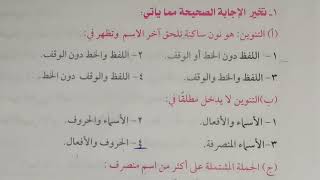 ١ـ تخير الإجابة الصحيحة مما يأتي:
(أ) التنوين: هو نون ساكنة تلحق آخر الاسم وتظهر في:
١- اللفظ دون الخط أو الوقف. ٢- اللفظ والخط دون الوقف.
٣- اللفظ والخط والوقف. ٤- اللفظ والوقف دون الخط.
(ب) التنوين لا يدخل مطلقًا في:
١- الأسماء والأفعال. ٢- الأسماء والحروف.
٣- الأسماء المنصرفة. ٤- الحروف والأفعال.
(ج) الجملة المشتملة على أكثر من اسم منصرف: